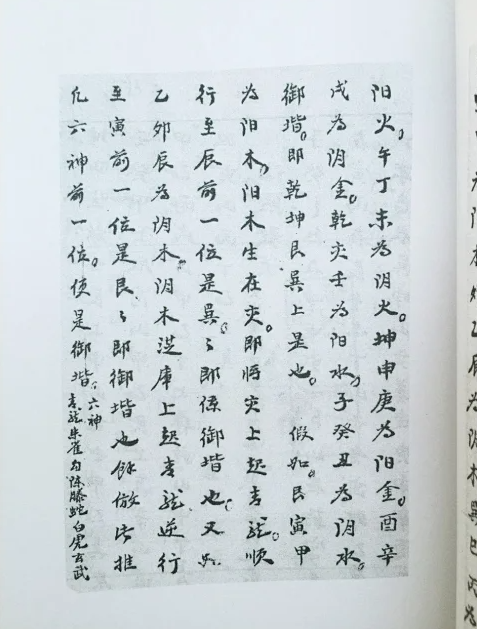 阳火。午丁未为阴火。坤申庚为阳金。酉辛
戌为阴金。乾亥壬为阳水。子癸丑为阴水。
御堦。即乾坤艮巽上是也。假如艮寅甲
为阳木。阳木生在亥。即将亥上起青龙。顺
行至辰前一位是巽。〻即系御堦也。又如
乙卯辰为阴木。阴木从库上起青龙逆行
至寅前一位是艮〻即御堦也馀仿此推
凡六神前一位。便是御堦。六神
青龙朱雀勾陈螣蛇白虎玄武